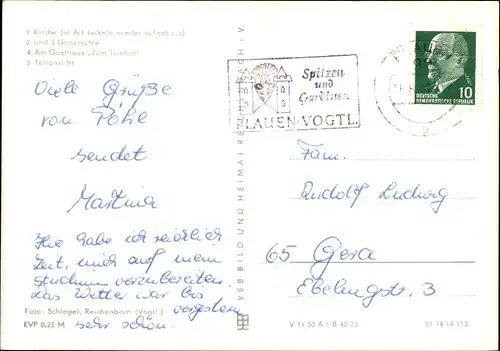 1 Kirche (in Alt Jocketa wieder aufgebaut)
2 und 3 Gansmühle
4 Am Gasthaus „Zum Triebtal"
5 Teilansicht
Viele Grüße
von Pöhl
sendet
Martina
Hie habe ich reichlich
Zeit, mich auf mein
Studium vorzubereiten.
Das Wetter war bis
vorgestern
sehr schön.
Foto: Schlegel, Reichenbach (Vogtl.)
EVP 0,25 M
VEB BILD UND HEIMAT REICHENBACH i.V.
Spitzen
und
Gardinen
PLAUEN·VOGTL.
10
DEUTSCHE
DEMOKRATISCHE REPUBLIK
Fam.
Rudolf Ludwig
65 Gera
Ebelingstr. 3
V 11 50 A 1 B 42 73
01 14 14 113